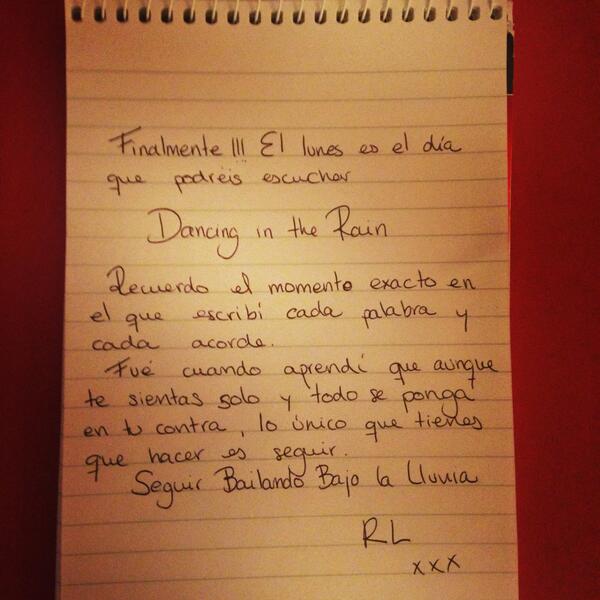 Finalmente!!! El lunes es el día
que podréis escuchar
Dancing in the Rain
Recuerdo el momento exacto en
el que escribí cada palabra y
cada acorde.
Fué cuando aprendí que aunque
te sientas solo y todo se ponga
en tu contra, lo único que tienes
que hacer es seguir.
Seguir Bailando Bajo la Lluvia
RL
xxx